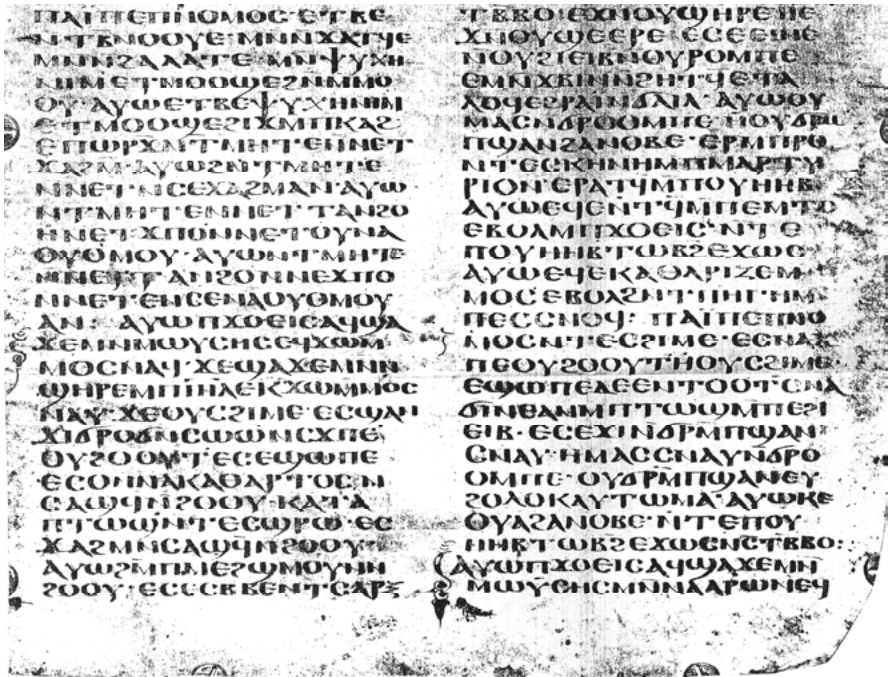 ⲡⲁⲓⲡⲉⲡⲛⲟⲙⲟⲥ·ⲉⲧⲃⲉ
ⲛⲧⲃⲛⲟⲟⲩⲉ·ⲙⲛⲛϫⲁⲧϥⲉ
ⲙⲛⲛϩⲁⲗⲁⲧⲉ·ⲙⲛⲯⲩⲭⲏ
ⲛⲓⲙⲉⲧⲙⲟⲟϣⲉϩⲛⲙⲙⲟ
ⲟⲩ·ⲁⲩⲱⲉⲧⲃⲉⲯⲩⲭⲏⲛⲓⲙ
ⲉⲧⲙⲟⲟϣⲉϩⲓϫⲙⲡⲕⲁϩ
ⲉⲡⲱⲣϫⲛⲧⲙⲏⲧⲉⲛⲛⲉⲧ
ϫⲁϩⲙ·ⲁⲩⲱϩⲛⲧⲙⲏⲧⲉ
ⲛⲛⲉⲧⲛⲥⲉϫⲁϩⲙⲁⲛ·ⲁⲩⲱ
ⲛⲧⲙⲏⲧⲉⲛⲛⲉⲧⲧⲁⲛϩⲟ
ⲏⲛⲉⲧϫⲡⲟⲛⲛⲉⲧⲟⲩⲛⲁ
ⲟⲩⲟⲙⲟⲩ·ⲁⲩⲱⲛⲧⲙⲏⲧⲉ
ⲛⲛⲉⲧⲧⲁⲛϩⲟⲛⲛⲉϫⲡⲟ
ⲛⲛⲉⲧⲉⲛⲥⲉⲛⲁⲟⲩⲟⲙⲟⲩ
ⲁⲛ: ⲁⲩⲱⲡϫⲟⲉⲓⲥⲁϥϣⲁ
ϫⲉⲙⲛⲙⲱⲩⲥⲏⲥⲉϥϫⲱⲙ
ⲙⲟⲥⲛⲁϥ·ϫⲉϣⲁϫⲉⲙⲛⲛ
ϣⲏⲣⲉⲙⲡⲓⲏⲗⲉⲕϫⲱⲙⲙⲟⲥ
ⲛⲁⲩ·ϫⲉⲟⲩⲥϩⲓⲙⲉ·ⲉⲥϣⲁⲛ
ϫⲓϭⲣⲟϭⲛⲥⲱⲱⲛⲥϫⲡⲉ
ⲟⲩϩⲟⲟⲩⲧⲉⲥⲉϣⲱⲡⲉ
ⲉⲥⲟⲛⲛⲁⲕⲁⲑⲁⲣⲧⲟⲥⲛ
ⲥⲁϣϥⲛϩⲟⲟⲩ·ⲕⲁⲧⲁ
ⲡⲧⲱϣⲛⲧⲉⲥϣⲣⲱ·ⲉⲥ
ϫⲁϩⲙⲛⲥⲁϣϥⲛϩⲟⲟⲩ·
ⲁⲩⲱϩⲙⲡⲙⲉϩϣⲙⲟⲩⲛⲛ
ϩⲟⲟⲩ·ⲉⲥⲉⲥⲃⲃⲉⲛⲧⲥⲁⲣⲝ
ⲧⲃⲃⲟ·ⲉϫⲛⲟⲩϣⲏⲣⲉⲏⲉ
ϫⲛⲟⲩϣⲉⲉⲣⲉ·ⲉⲥⲉⲉⲓⲛⲉ
ⲛⲟⲩϩⲓⲉⲓⲃⲛⲟⲩⲣⲟⲙⲡⲉ
ⲉⲙⲛϫⲃⲓⲛⲛϩⲏⲧϥⲉϯⲁ
ⲗⲟϥⲉϩⲣⲁⲓⲛϭⲗⲓⲗ·ⲁⲩⲱⲟⲩ
ⲙⲁⲥⲛϭⲣⲟⲟⲙⲡⲉ·ⲏⲟⲩϭⲣⲙ
ⲡϣⲁⲛϩⲁⲛⲟⲃⲉ·ⲉⲣⲙⲡⲣⲟ
ⲛⲧⲉⲥⲕⲏⲛⲏⲙⲡⲙⲁⲣⲧⲩ
ⲣⲓⲟⲛ·ⲉⲣⲁⲧϥⲙⲡⲟⲩⲏⲏⲃ·
ⲁⲩⲱⲉϥⲉⲛⲧϥⲙⲡⲉⲙⲧⲟ
ⲉⲃⲟⲗⲙⲡϫⲟⲉⲓⲥ·ⲛⲧⲉ
ⲡⲟⲩⲏⲏⲃⲧⲱⲃϩⲉϫⲱⲥ
ⲁⲩⲱⲉϥⲉⲕⲁⲑⲁⲣⲓⲍⲉⲙ
ⲙⲟⲥⲉⲃⲟⲗϩⲛⲧⲡⲏⲅⲏⲙ
ⲡⲉⲥⲥⲛⲟϥ: ⲡⲁⲓⲡⲉⲡⲛⲟ
ⲙⲟⲥⲛⲧⲉⲥϩⲓⲙⲉ·ⲉⲥⲛⲁϫ
ⲡⲉⲟⲩϩⲟⲟⲩⲧⲏⲟⲩⲥϩⲓⲙⲉ·
ⲉϣⲱⲡⲉⲇⲉⲉⲛⲧⲟⲟⲧⲥⲛⲁ
ϭⲓⲛⲉⲁⲛⲙⲡⲧⲱϣⲙⲡⲉϩⲓ
ⲉⲓⲃ·ⲉⲥⲉϫⲓⲛϭⲣⲙⲡϣⲁⲛ
ⲥⲛⲁⲩ·ⲏⲙⲁⲥⲥⲛⲁⲩⲛϭⲣⲟ
ⲟⲙⲡⲉ·ⲟⲩϭⲣⲙⲡϣⲁⲛⲉⲩ
ϩⲟⲗⲟⲕⲁⲩⲧⲱⲙⲁ·ⲁⲩⲱⲕⲉ
ⲟⲩⲁϩⲁⲛⲟⲃⲉ·ⲛⲧⲉⲡⲟⲩ
ⲏⲏⲃⲧⲱⲃϩⲉϫⲱⲥⲛⲥⲧⲃⲃⲟ:
ⲁⲩⲱⲡϫⲟⲉⲓⲥⲁϥϣⲁϫⲉⲙⲛ
ⲙⲱⲩⲥⲏⲥⲙⲛⲛⲁⲁⲣⲱⲛⲉϥ